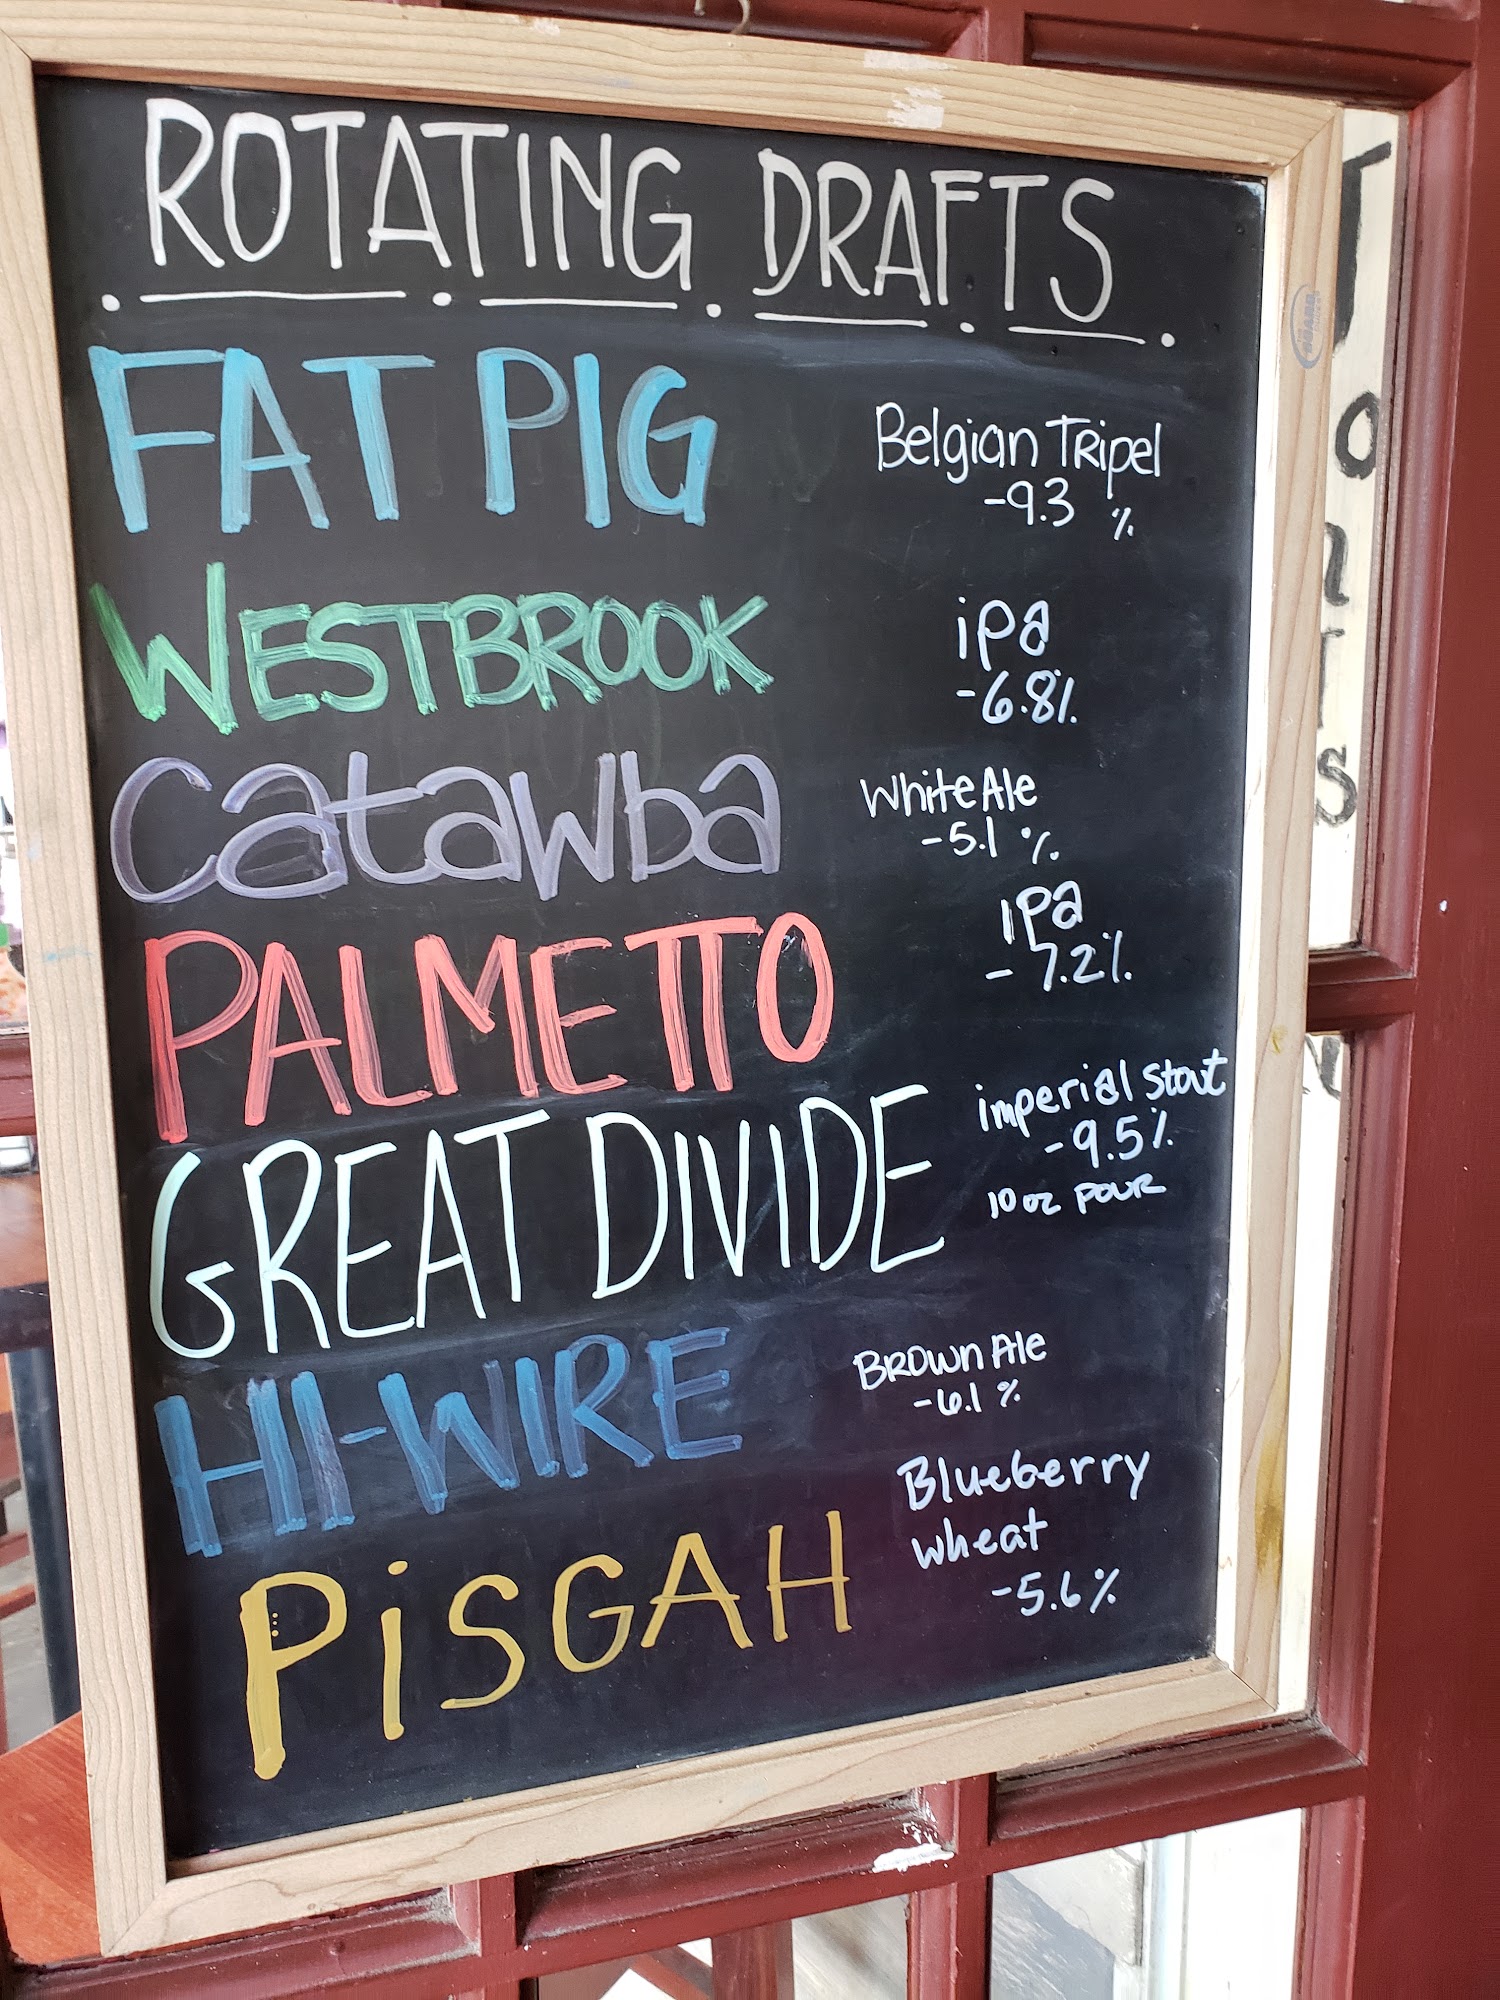 ROTATING DRAFTS
FAT PIG
Belgian Tripel
-9.3 %
WESTBROOK
ipa
-6.8%
Catawba
White Ale
-5.1 %
PALMETTO
ipa
- 7.2%
GREAT DIVIDE
imperial stout
-9.5%
10 oz pour
HI-WIRE
BROWN Ale
-6.1 %
PiSGAH
Blueberry
wheat
-5.6%